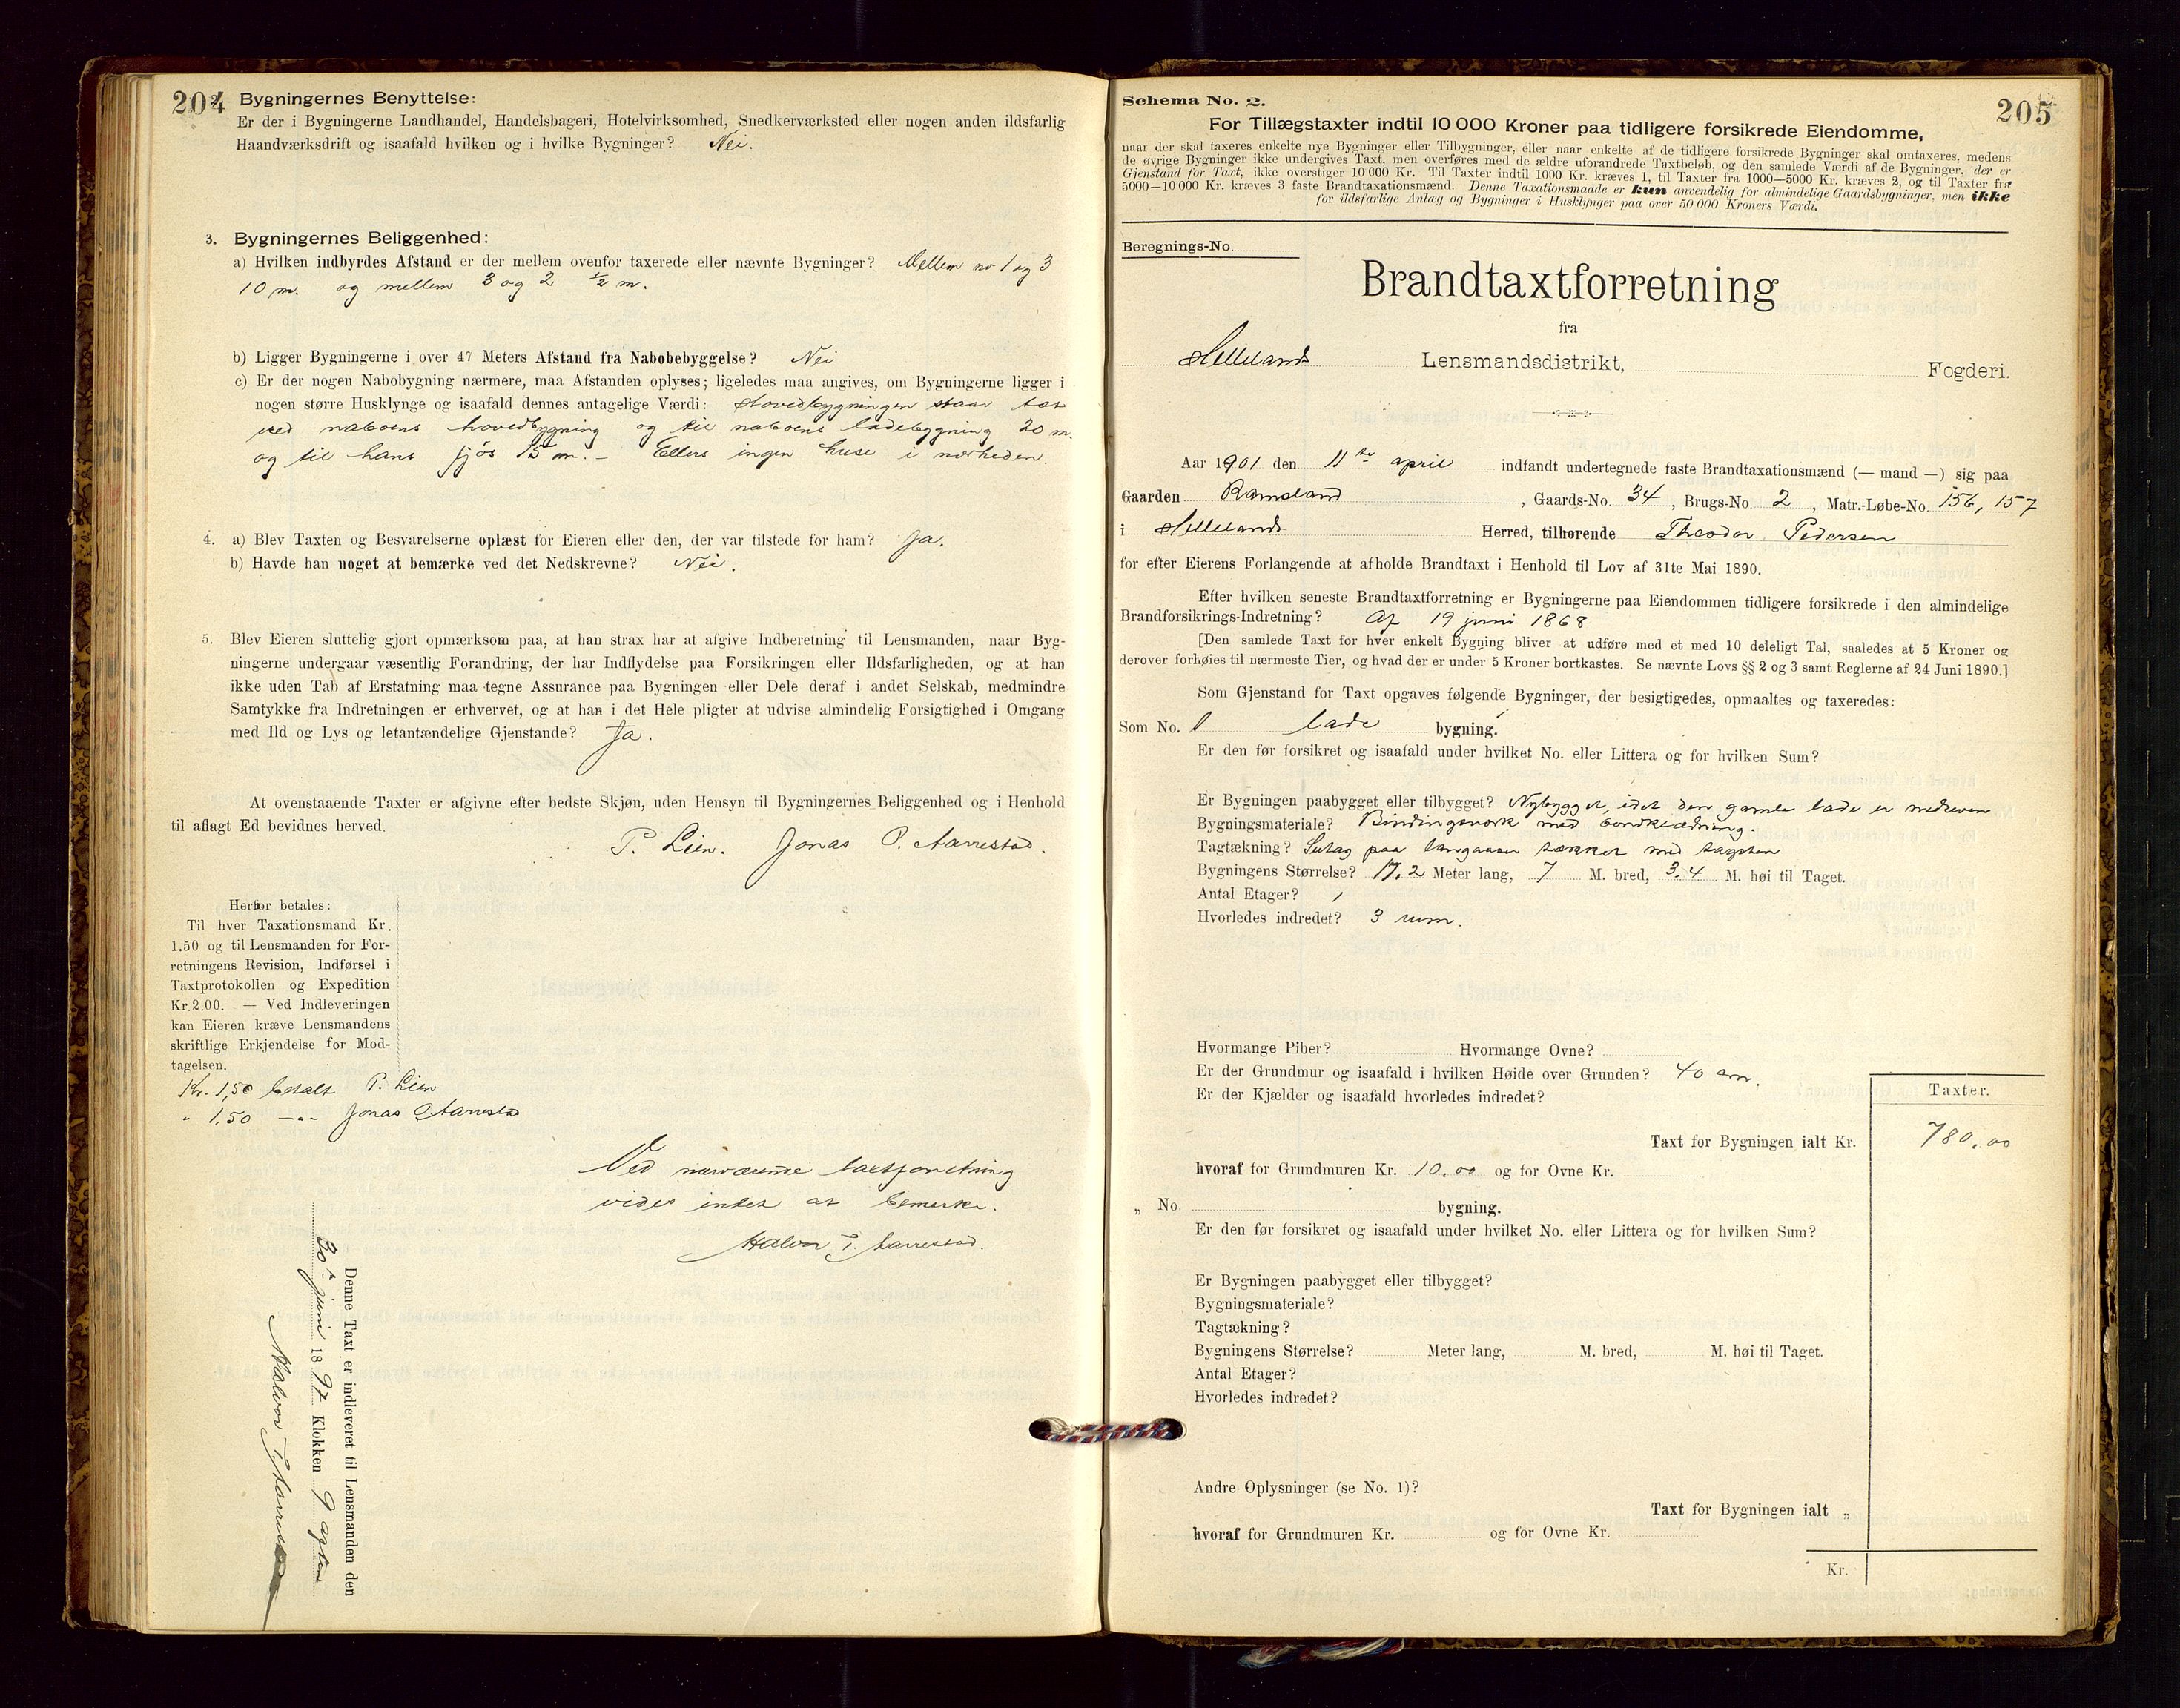 204
2. Bygningernes Benyttelse:
Er der i Bygningerne Landhandel, Handelsbageri, Hotelvirksomhed, Snedkerværksted eller nogen anden ildsfarlig
Haandværksdrift og isaafald hvilken og i hvilke Bygninger? Nei.
3. Bygningernes Beliggenhed:
a) Hvilken indbyrdes Afstand er der mellem ovenfor taxerede eller nævnte Bygninger? Mellem no 1 og 3
10 m. og mellem 3 og 2 ½ m.
b) Ligger Bygningerne i over 47 Meters Afstand fra Nabobebyggelse? Nei
c) Er der nogen Nabobygning nærmere, maa Afstanden oplyses; ligeledes maa angives, om Bygningerne ligger i
nogen større Husklynge og isaafald dennes antagelige Værdi: Hovedbygningen staar tæt
ved naboens hovedbygning og til naboens ladebygning 20 m.
og til hans fjøs 15 m. - Ellers ingen huse i nærheden.
4. a) Blev Taxten og Besvarelserne oplæst for Eieren eller den, der var tilstede for ham? Ja.
b) Havde han noget at bemærke ved det Nedskrevne? Nei.
5. Blev Eieren sluttelig gjort opmærksom paa, at han strax har at afgive Indberetning til Lensmanden, naar Byg-
ningerne undergaar væsentlig Forandring, der har Indflydelse paa Forsikringen eller Ildsfarligheden, og at han
ikke uden Tab af Erstatning maa tegne Assurance paa Bygningen eller Dele deraf i andet Selskab, medmindre
Samtykke fra Indretningen er erhvervet, og at han i det Hele pligter at udvise almindelig Forsigtighed i Omgang
med Ild og Lys og letantændelige Gjenstande? Ja.
At ovenstaaende Taxter er afgivne efter bedste Skjøn, uden Hensyn til Bygningernes Beliggenhed og i Henhold
til aflagt Ed bevidnes herved.
P. Lien. Jonas P. Aarrestad.
Herfor betales:
Til hver Taxationsmand Kr.
1.50 og til Lensmanden for For-
retningens Revision, Indførsel i
Taxtprotokollen og Expedition
Kr. 2.00. — Ved Indleveringen
kan Eieren kræve Lensmandens
skriftlige Erkjendelse for Mod-
tagelsen.
Kr. 1,50 betalt P. Lien
" 1,50 -"- Jonas Aarrestad
Ved nærværende taxtforretning
vides intet at bemerke.
Halvor T. Aarrestad.
Denne Taxt er indleveret til Lensmanden den
30te juni 1897 Klokken 9 aften
Halvor T. Aarrestad
205
Schema No. 2.
For Tillægstaxter indtil 10 000 Kroner paa tidligere forsikrede Eiendomme,
naar der skal taxeres enkelte nye Bygninger eller Tilbygninger, eller naar enkelte af de tidligere forsikrede Bygninger skal omtaxeres, medens
de øvrige Bygninger ikke undergives Taxt, men overføres med de ældre uforandrede Taxtbeløb, og den samlede Værdi af de Bygninger, der er
Gjenstand for Taxt, ikke overstiger 10 000 Kr. Til Taxter indtil 1000 Kr. kræves 1, til Taxter fra 1000—5000 Kr. kræves 2, og til Taxter fra
5000—10 000 Kr. kræves 3 faste Brandtaxationsmænd. Denne Taxationsmaade er kun anvendelig for almindelige Gaardsbygninger, men ikke
for ildsfarlige Anlæg og Bygninger i Husklynger paa over 50 000 Kroners Værdi.
Beregnings-No.
Brandtaxtforretning
fra
Hellelands Lensmandsdistrikt, Fogderi.
Aar 1901 den 11te april indfandt undertegnede faste Brandtaxationsmænd (— mand —) sig paa
Gaarden Ramsland, Gaards-No. 34, Brugs-No. 2, Matr.-Løbe-No. 156, 157
i Hellelands Herred, tilhørende Theodor Pedersen
for efter Eierens Forlangende at afholde Brandtaxt i Henhold til Lov af 31te Mai 1890.
Efter hvilken seneste Brandtaxtforretning er Bygningerne paa Eiendommen tidligere forsikrede i den almindelige
Brandforsikrings-Indretning? Af 19 juni 1868
[Den samlede Taxt for hver enkelt Bygning bliver at udføre med et med 10 deleligt Tal, saaledes at 5 Kroner og
derover forhøies til nærmeste Tier, og hvad der er under 5 Kroner bortkastes. Se nævnte Lovs §§ 2 og 3 samt Reglerne af 24 Juni 1890.]
Som Gjenstand for Taxt opgaves følgende Bygninger, der besigtigedes, opmaaltes og taxeredes:
Som No. 1 lade bygning.
Er den før forsikret og isaafald under hvilket No. eller Littera og for hvilken Sum?
Er Bygningen paabygget eller tilbygget? Nybygget, idet den gamle lade er nedreven
Bygningsmateriale? Bindingsverk med bordklædning.
Tagtækning? Sutag paa langaaser tækket med tagsten
Bygningens Størrelse? 17,2 Meter lang, 7 M. bred, 3.4 M. høi til Taget.
Antal Etager? 1
Hvorledes indredet? 3 rum.
Hvormange Piber? Hvormange Ovne?
Er der Grundmur og isaafald i hvilken Høide over Grunden? 40 cm.
Er der Kjælder og isaafald hvorledes indredet?
Taxter.
Taxt for Bygningen ialt Kr. 780,00
hvoraf for Grundmuren Kr. 10,00 og for Ovne Kr.
„ No. bygning.
Er den før forsikret og isaafald under hvilket No. eller Littera og for hvilken Sum?
Er Bygningen paabygget eller tilbygget?
Bygningsmateriale?
Tagtækning?
Bygningens Størrelse? Meter lang, M. bred, M. høi til Taget.
Antal Etager?
Hvorledes indredet?
Andre Oplysninger (se No. 1)?
Taxt for Bygningen ialt „
hvoraf for Grundmuren Kr. og for Ovne Kr.
Kr.